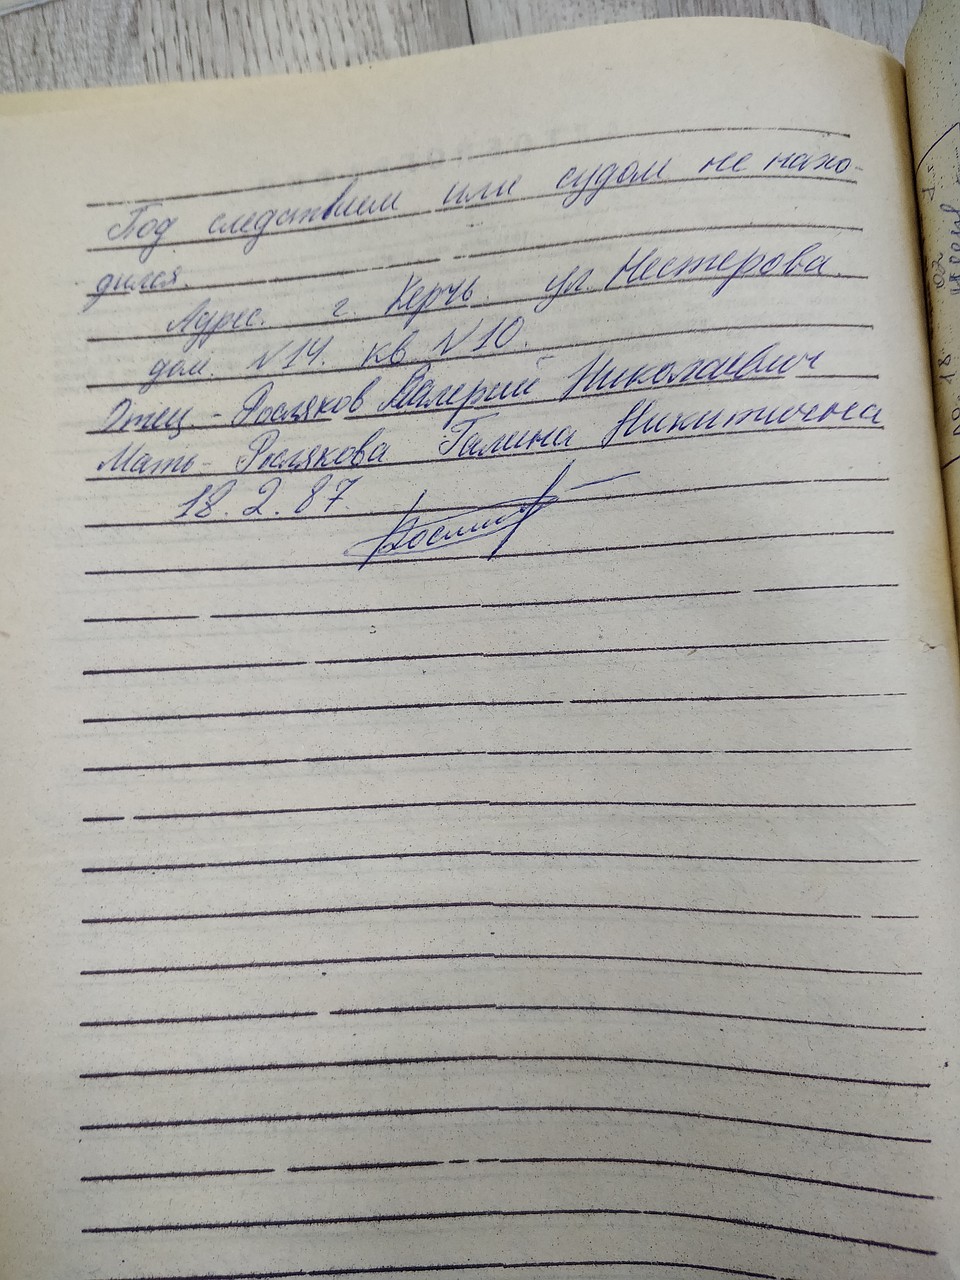 Под следствием или судом не нахо-
дился.
Адрес. г. Керчь. ул. Нестерова.
дом. N14. кв. N10.
Отец - Росляков Валерий Николаевич
Мать - Рослякова Галина Никитична
18.2.87.